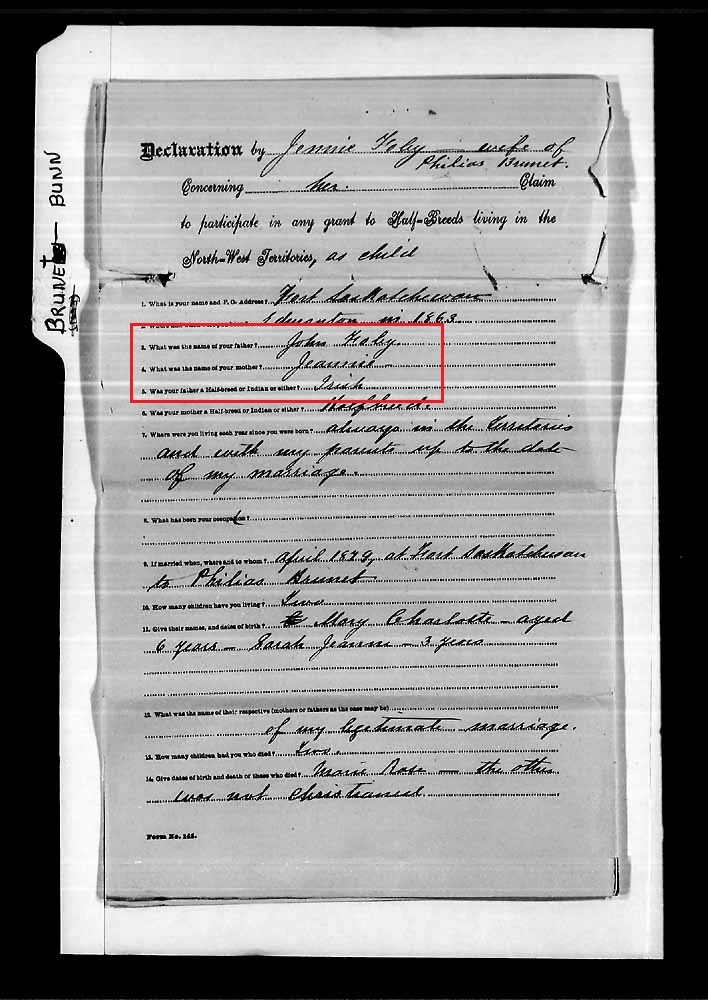 BRUNET BUNN
Declaration by Jennie Foley — wife of
Philias Brunet.
Concerning her Claim
to participate in any grant to Half-Breeds living in the
North-West Territories, as child
1. What is your name and P. O. Address? Fort Saskatchewan
Edmonton in 1863
3. What was the name of your father? John Foley
4. What was the name of your mother? Jeannie
5. Was your father a Half-breed or Indian or either? Irish
6. Was your mother a Half-breed or Indian or either? Halfbreed.
7. Where were you living each year since you were born? always in the Territories
and with my parents up to the date
of my marriage.
8. What has been your occupation?
9. If married when, where and to whom? April 1879, at Fort Saskatchewan
to Philias Brunet
10. How many children have you living? Two
11. Give their names, and dates of birth? Mary Charlotte – aged
6 years – Sarah Jeanne – 3 years
12. What was the name of their respective (mothers or fathers as the case may be)
of my legitimate marriage.
13. How many children had you who died? Two.
14. Give dates of birth and death of these who died? Marie Rose — the other
was not christianed
Form No. 145.